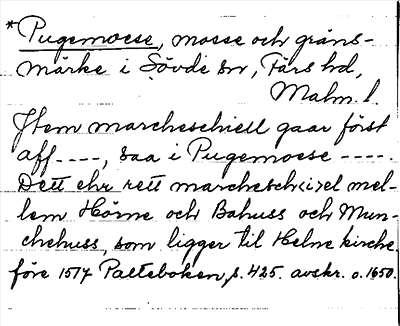 *Pugemoese, mosse och gräns-
märke i Sövde sn, Färs hd,
Malm. l.
Jtem marcheschiell gaar först
aff ----, saa i Pugemoese ----.
Dett ehr rett marchesch<i>el mel-
lem Hörne och Bahuss och Mun-
chehuss, som ligger til Helne kirche.
före 1514 Palteboken, s. 425. avskr. o. 1650.